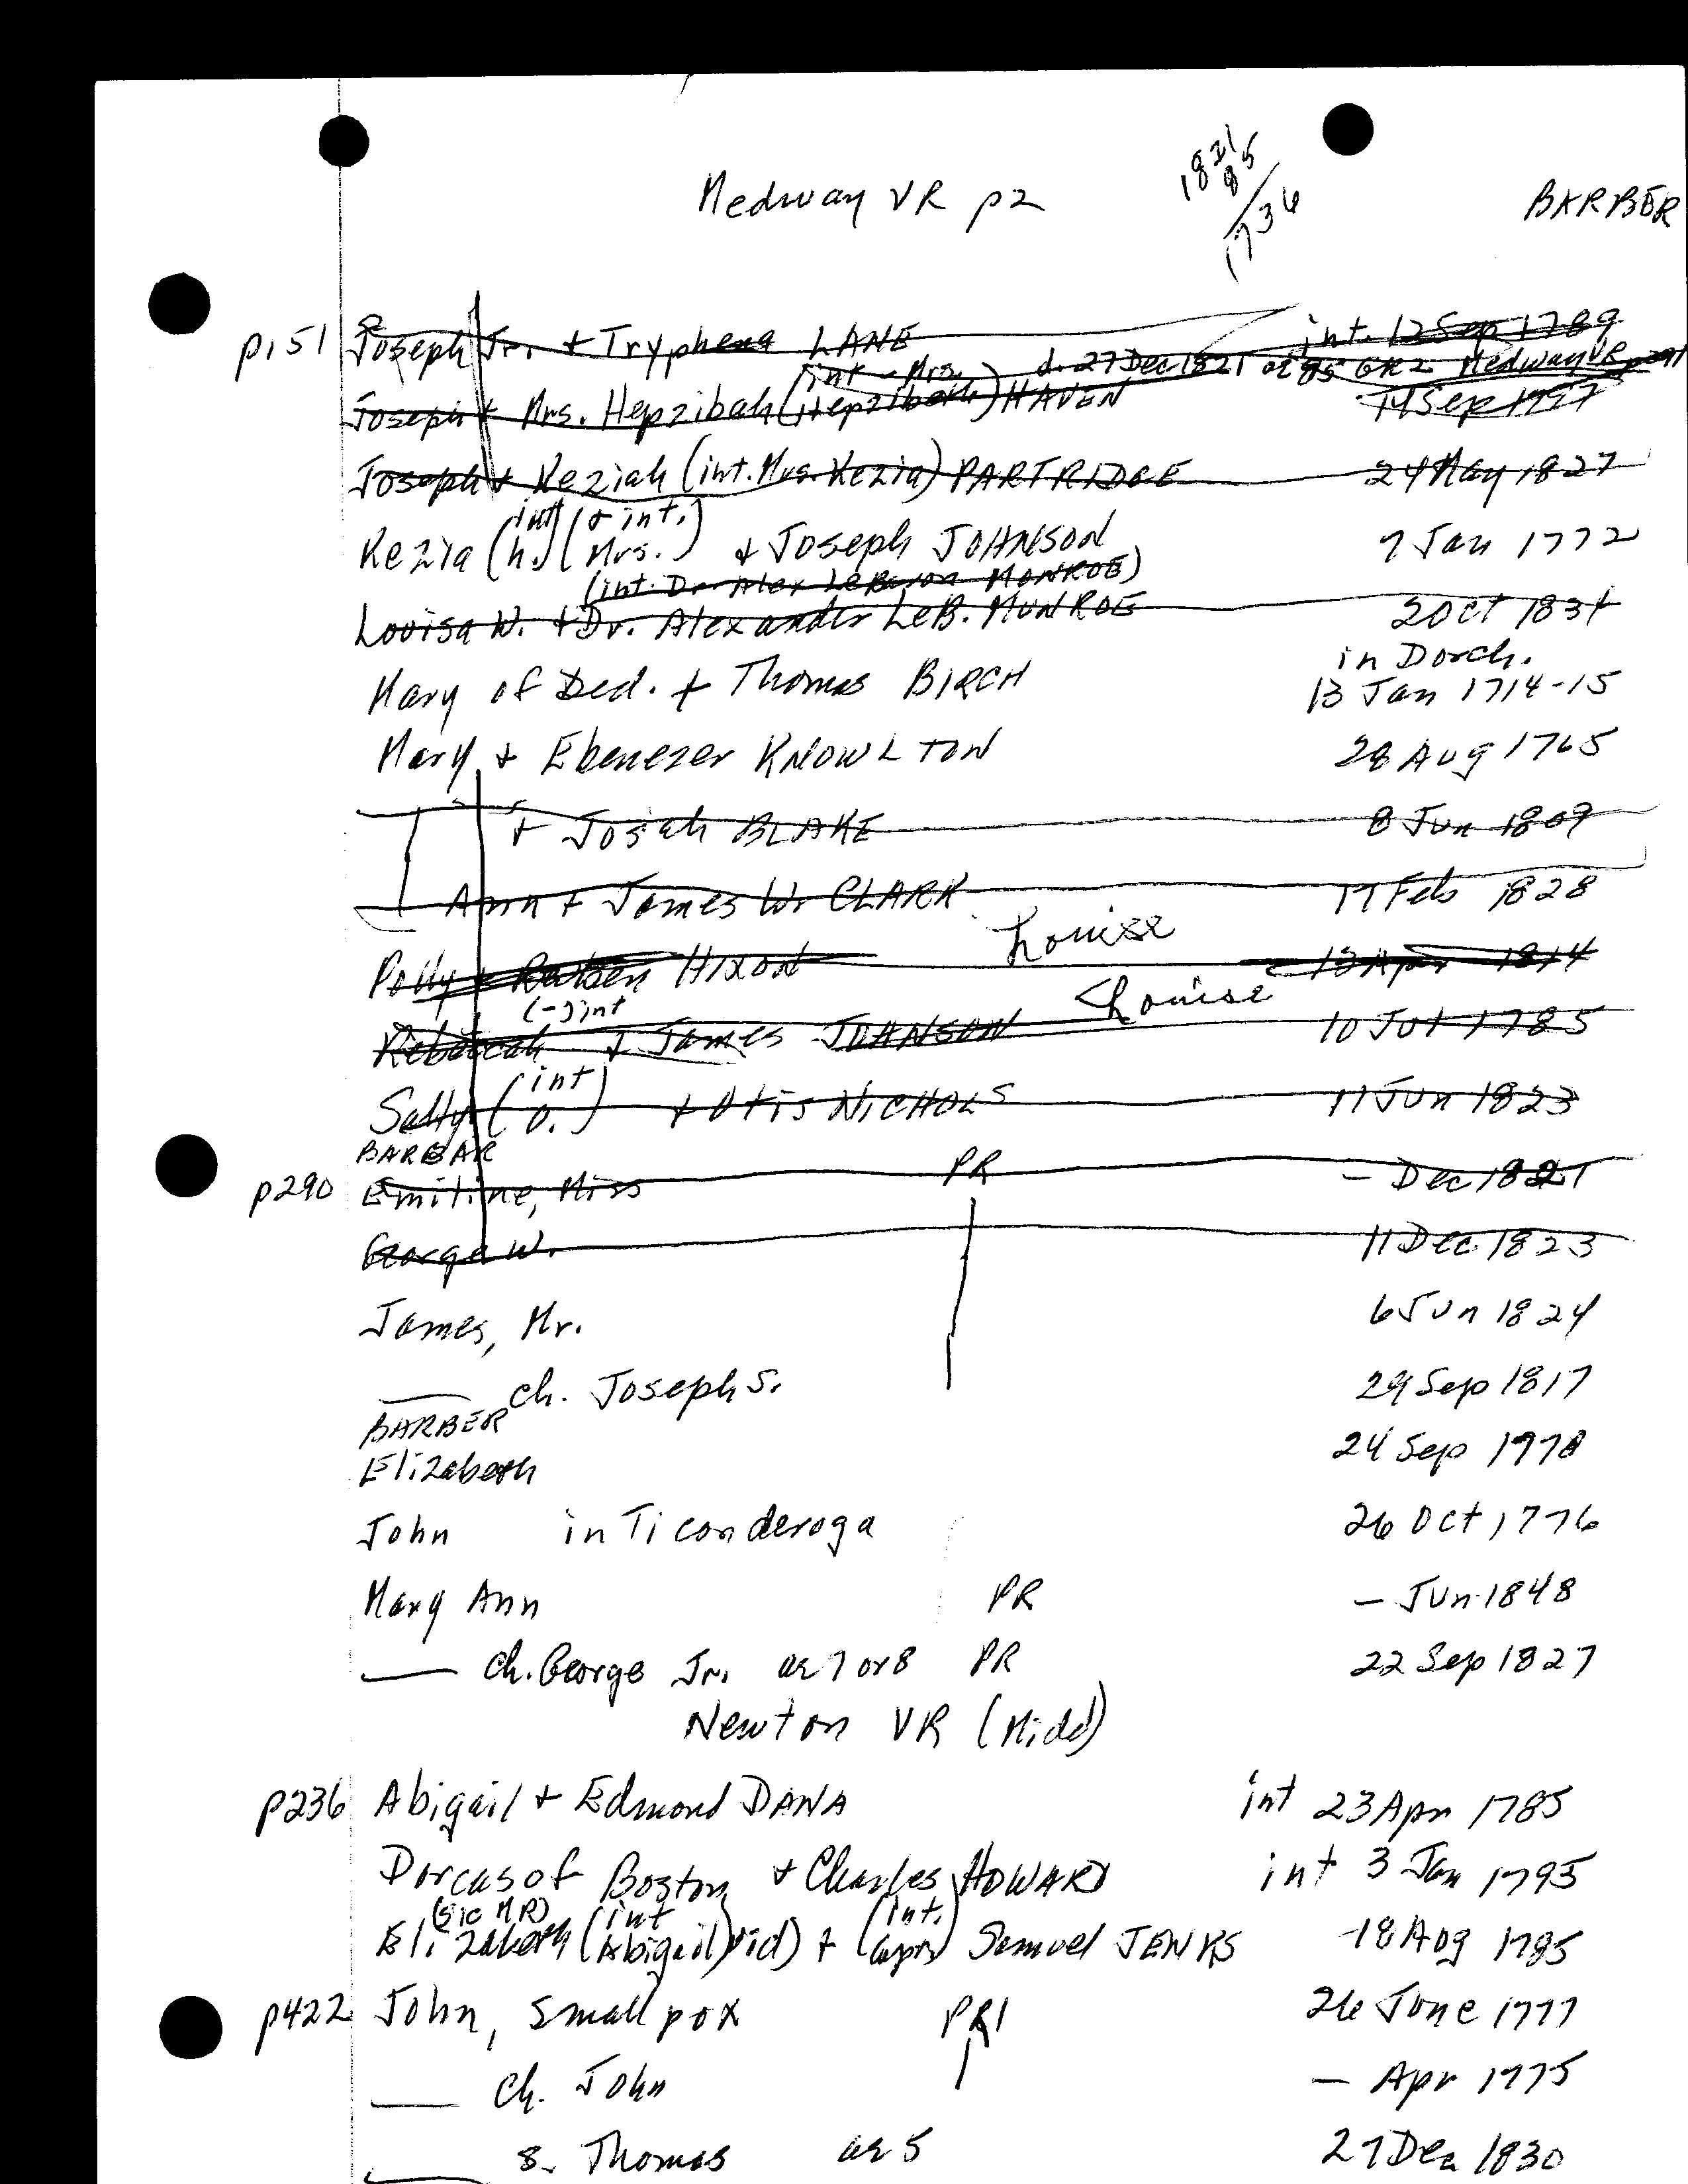 Medway VR p2
1821
85
1736
BARBER
p151 Joseph Jr. + Tryphena LANE int. 12 Sep 1789
(int - Mrs. d. 27 Dec 1821 ae 85 GR2 Medway VR p291
Joseph + Mrs. Hepzibah (Hepzibeth) HAVEN 14 Sep 1797
Joseph + Keziah (int. Mrs. Kezia) PARTRIDGE 24 May 1827
int) (+ int.)
Kezia (h.) (Mrs.) + Joseph JOHNSON 7 Jan 1772
(int. Dr. Alex LeBaron MONROE)
Louisa W. + Dr. Alexander LeB. MUNROE 2 Oct 1834
in Dorch.
Mary of Ded. + Thomas BIRCH 13 Jan 1714-15
Mary + Ebenezer KNOWLTON 28 Aug 1765
+ Josiah BLAKE 8 Jun 1809
Ann + James W. CLARK 17 Feb 1828
Louise
Polly + Reuben HIXON 13 Apr 1814
(-) int Louise
Rebeccah + James JOHNSON 10 Jul 1785
(int)
Sally (O.) + Otis NICHOLS 11 Jun 1823
BARBAR
p290 Emiline, Miss PR - Dec 1821
George W. 11 Dec 1823
James, Mr. 6 Jun 1824
— ch. Joseph S. 29 Sep 1817
BARBER
Elizabeth 24 Sep 1778
John in Ticonderoga 26 Oct 1776
Mary Ann PR - Jun 1848
— ch. George Jr. ae 7 or 8 PR 22 Sep 1827
Newton VR (Midd)
p236 Abigail + Edmond DANA int 23 Apr 1785
Dorcas of Boston + Charles HOWARD int 3 Jan 1795
(sic MR) (int (int.
Elizabeth (Abigail) wid) + Capt) Samuel JENKS 18 Aug 1785
p422 John, small pox PR1 26 June 1777
— ch. John - Apr 1775
— s. Thomas ae 5 27 Dec 1830